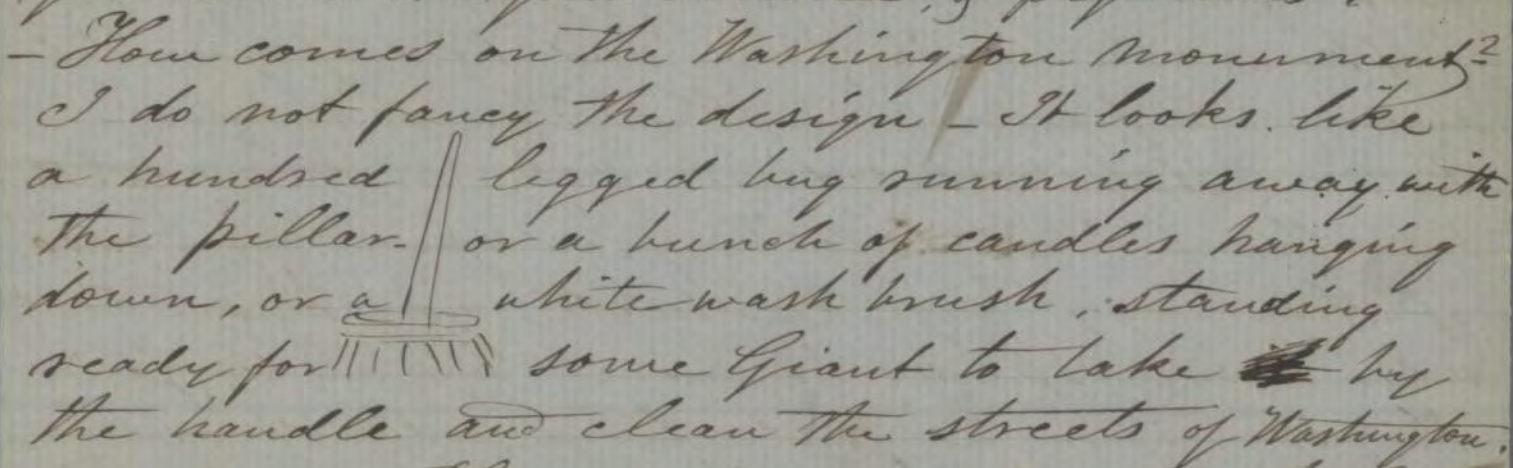 - How comes on the Washington monument?
I do not fancy the design - It looks like
a hundred legged bug running away with
the pillar - or a bunch of candles hanging
down, or a white wash brush, standing
ready for some Giant to take by
the handle and clean the streets of Washington.